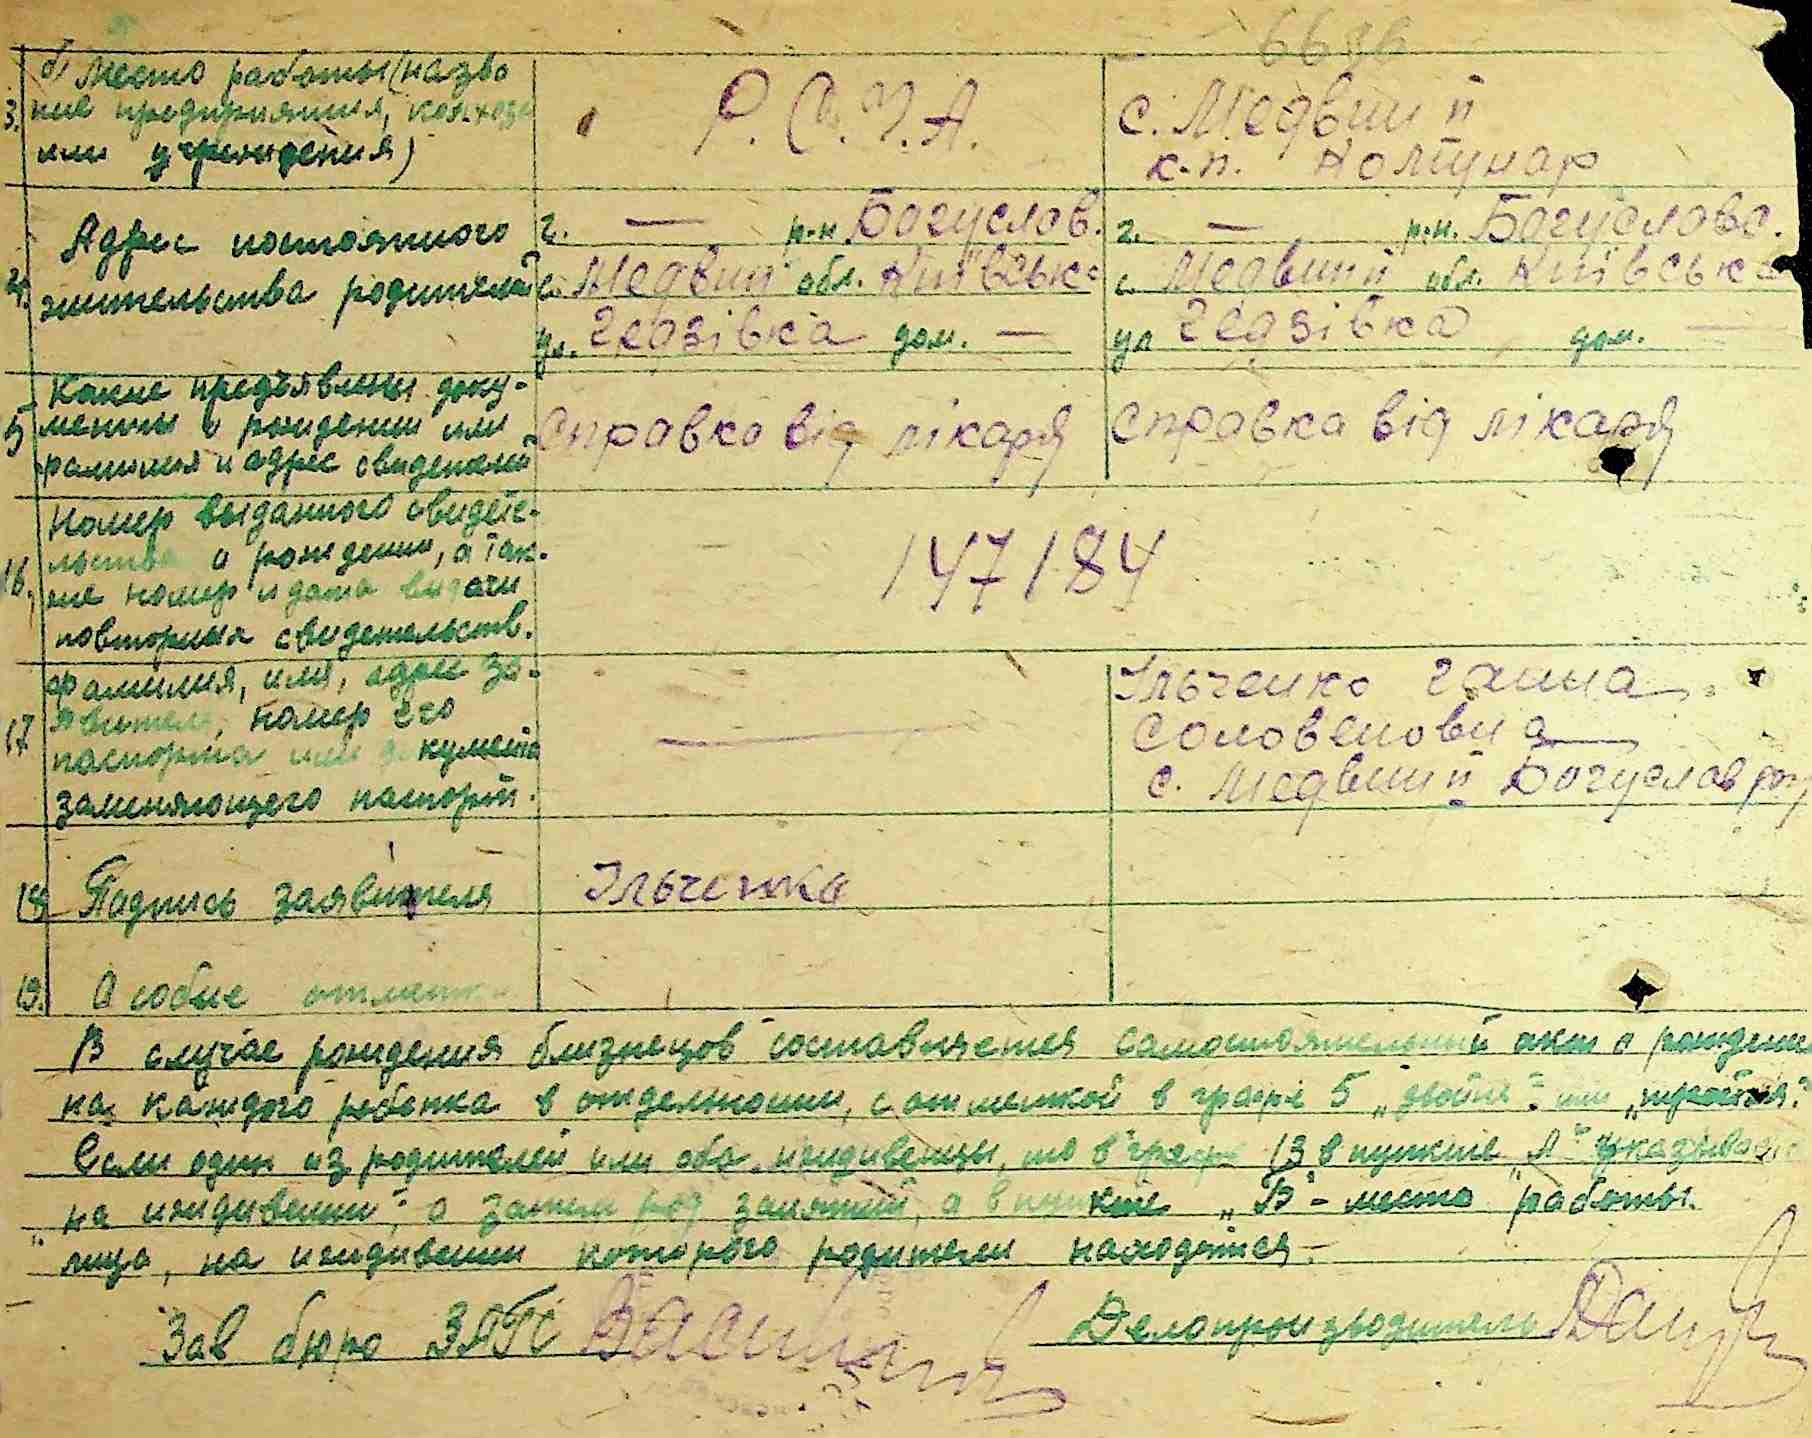 66
б) Место работы (назва
3. ние предприятия, колхоза
или учреждения)
Р. С. Ч. А.
с. Медвин й
к-п. Комунар
4. Адрес постоянного
жительства родителей
г. — р-н. Богуслав.
с. Медвин обл. Київськ
ул. Гразівка дом. —
г. — р-н. Богуслава.
с. Медвин й обл. Київська
ул Гразівка дом. —
5 Какие предъявлены доку-
менты о рождении или
фамилия и адрес свидетелей
Справка від лікаря
Справка від лікаря
16, Номер выданного свидете-
льства о рождении, а так-
же номер и дата видачи
повторния свидетельств.
147184
17 фамилия, имя, адрес за-
явителя, номер его
паспорта или документа
заменяющего паспорт.
—
Ільченко Ганна
Соловеновна
с. Медвин й Богуслав
18 Подпись заявителя
Ільченко
19. Особые отметки
В случае рождения близнецов составляется самостоятельный акт о рождении
на каждого ребенка в отдельности, с отметкой в графе 5 „двойня" или „тройня".
Если один из родителей или оба иждивенцы, то в графе 13 в пункте „А" указывается
„на иждивении", а затем род занятий, а в пункте „Б" - место работы
лица, на иждивении которого родители находятся.
Зав бюро ЗАГС
Делопроизводитель